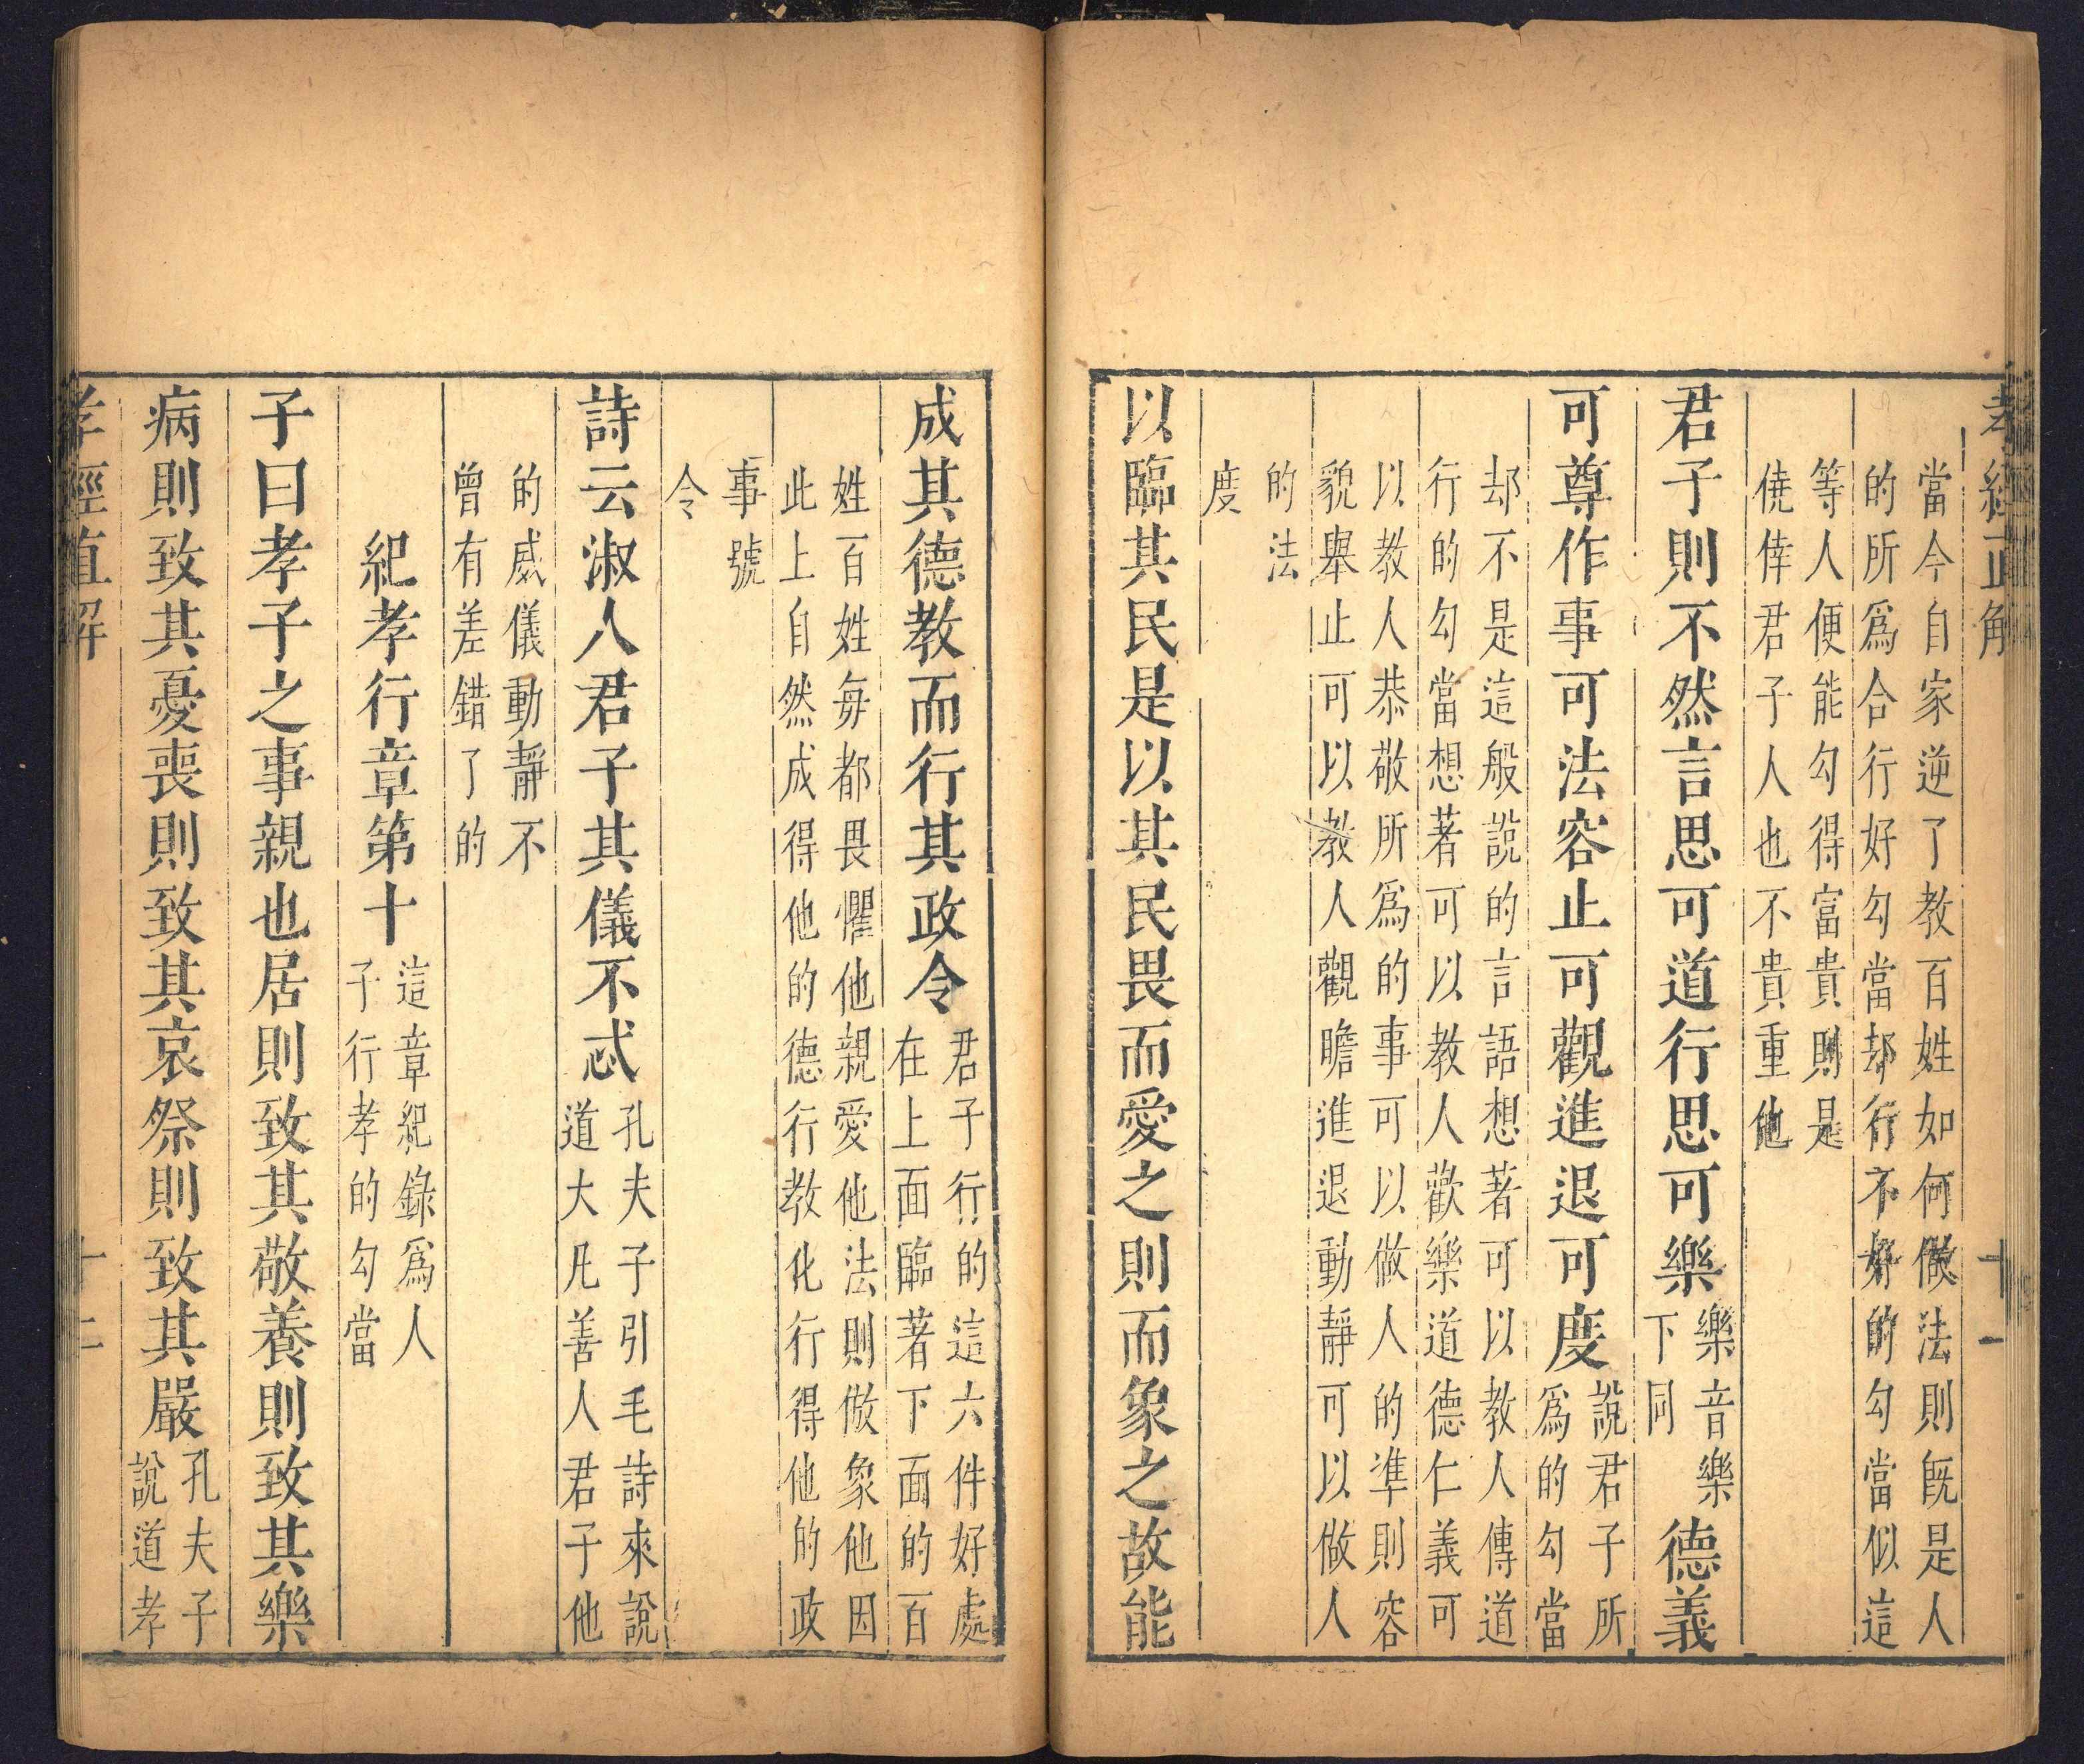 孝經直解 十一
當今自家逆了教百姓如何做法則旣是人
的所爲合行好勾當却行不好的勾當似這
等人便能勾得富貴則是
僥倖君子人也不貴重他
君子則不然言思可道行思可樂樂音樂下同德義
可尊作事可法容止可觀進退可度說君子所爲的勾當
却不是這般說的言語想著可以教人傳道
行的勾當想著可以教人歡樂道德仁義可
以教人恭敬所爲的事可以做人的準則容
貌舉止可以教人觀瞻進退動靜可以做人
的法
度
以臨其民是以其民畏而愛之則而象之故能
成其德教而行其政令君子行的這六件好處在上面臨著下面的百
姓百姓每都畏懼他親愛他法則倣象他因
此上自然成得他的德行教化行得他的政
事號
令
詩云淑人君子其儀不忒孔夫子引毛詩來說道大凡善人君子他
的威儀動靜不
曾有差錯了的
紀孝行章第十這章紀錄爲人子行孝的勾當
子曰孝子之事親也居則致其敬養則致其樂
病則致其憂喪則致其哀祭則致其嚴孔夫子說道孝
孝經直解 十二